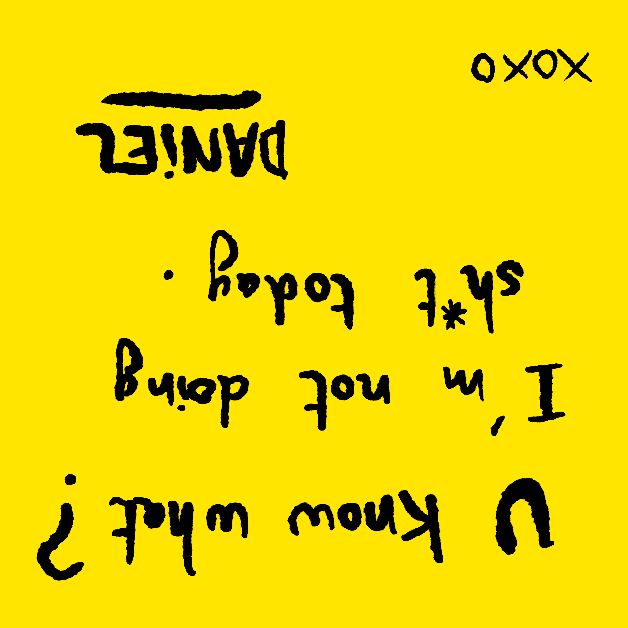 U know what?
I'm not doing
sh*t today.
DANiEL
xoxo